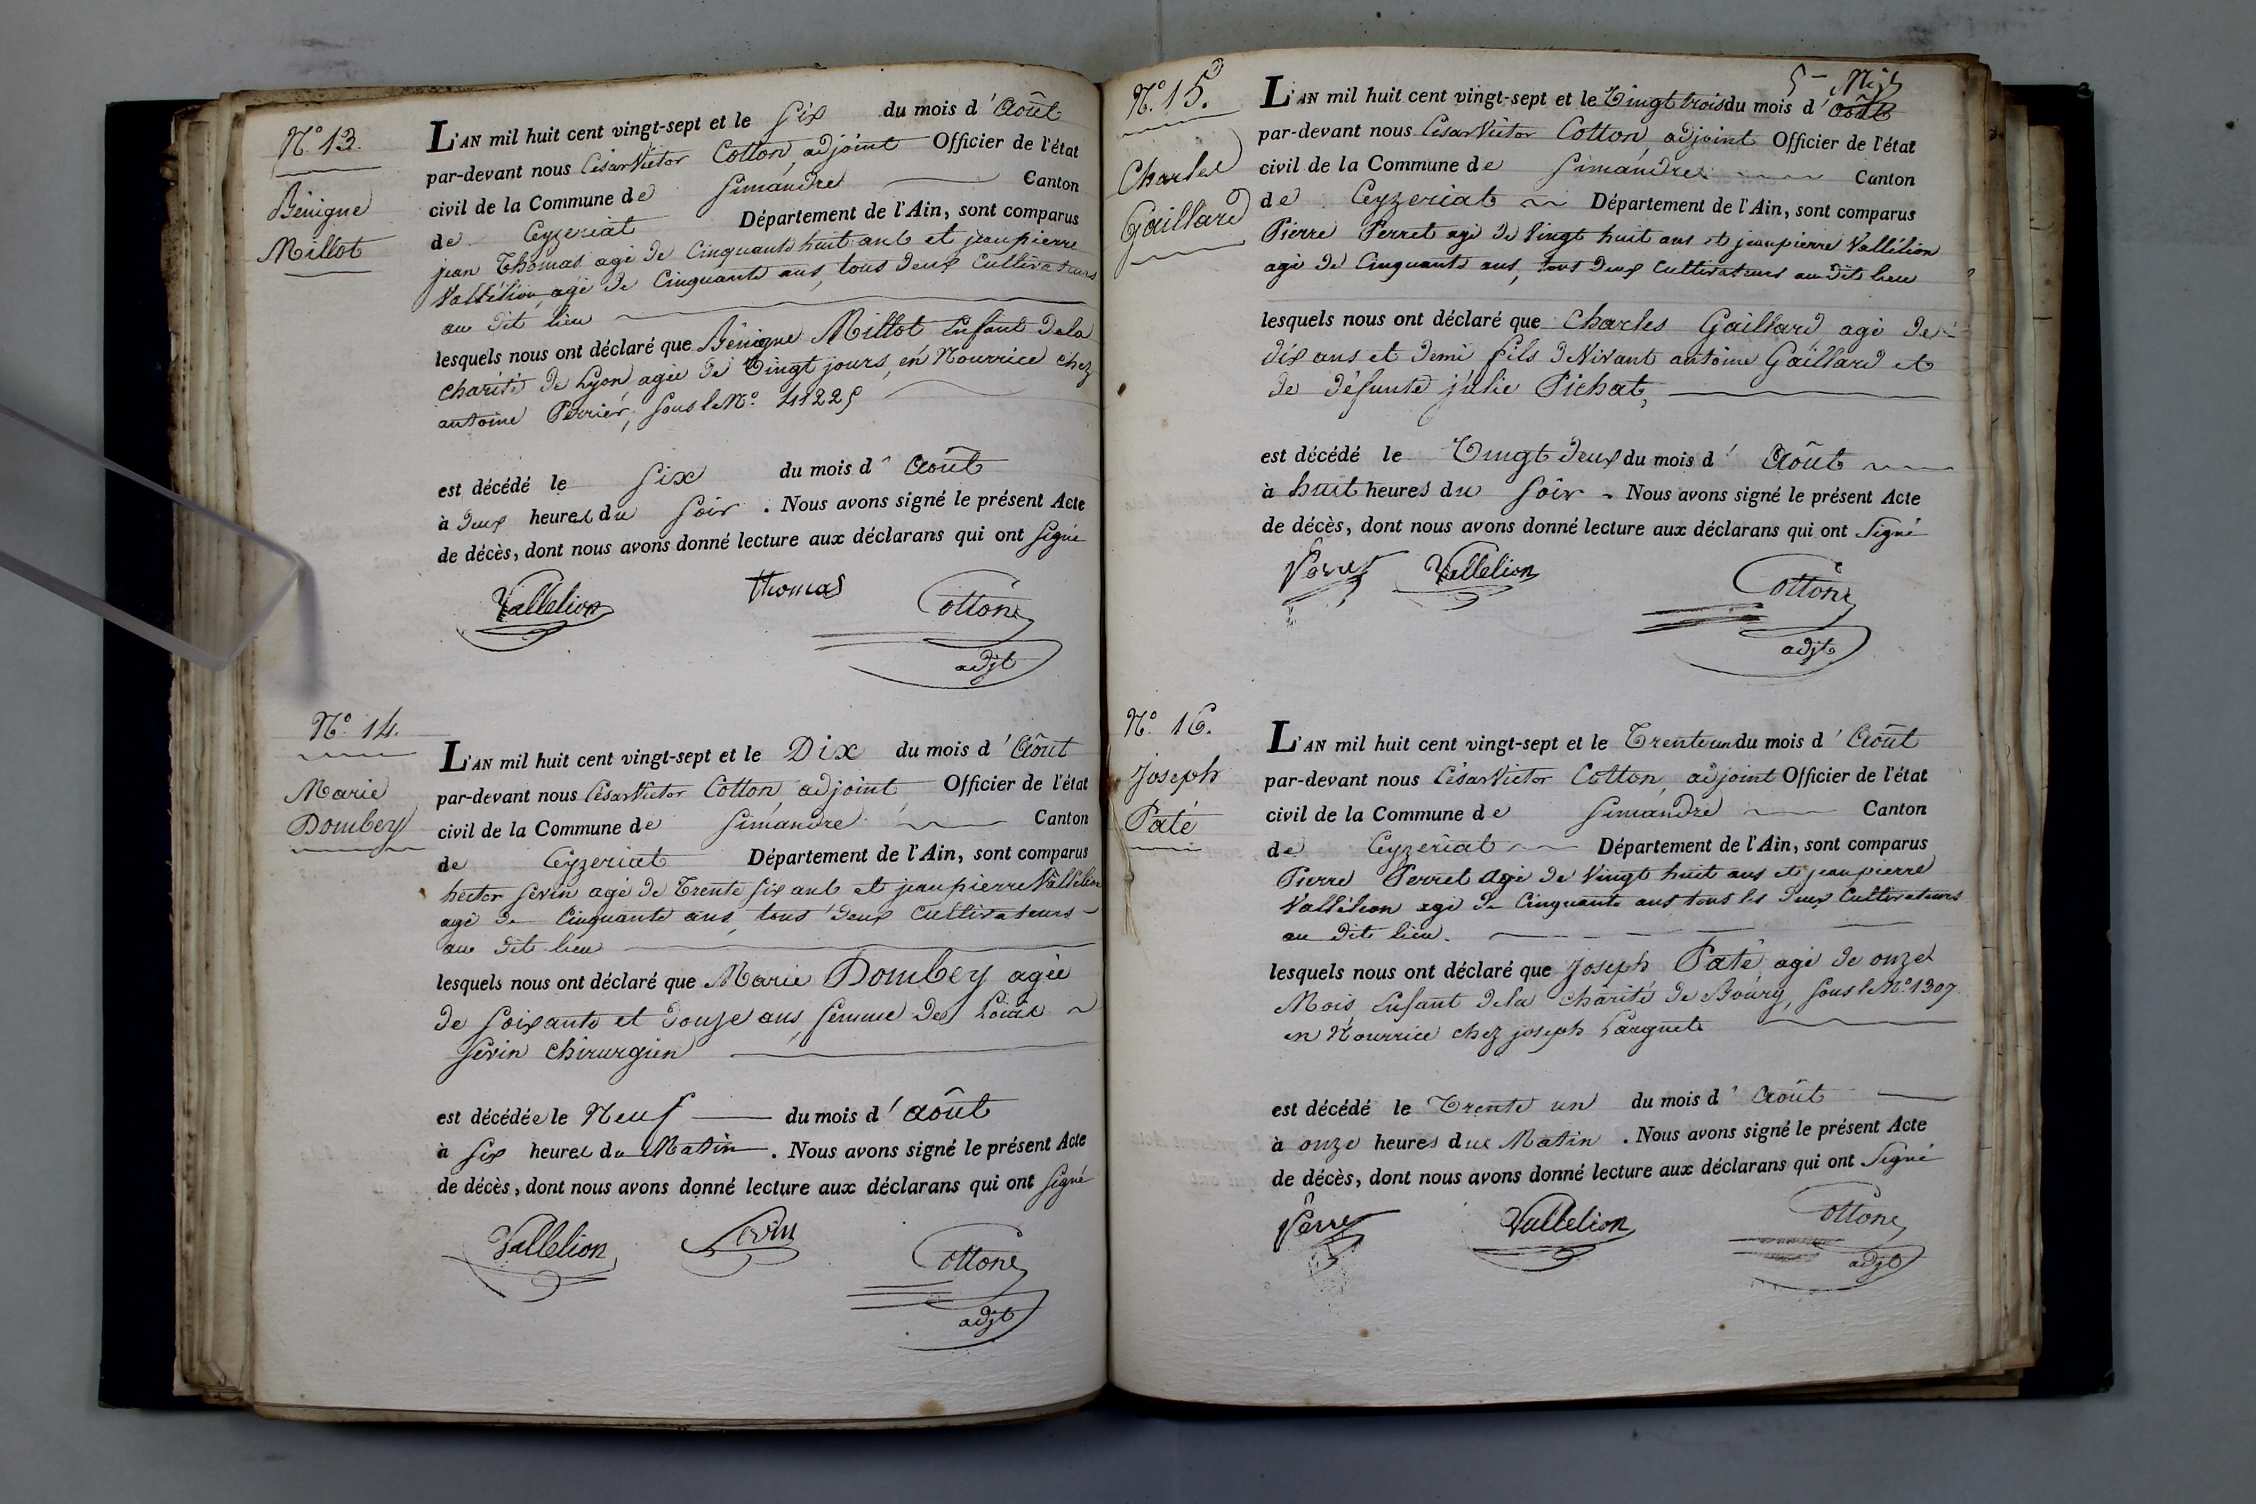 N.º 13.
Bénigne
Millot
L'AN mil huit cent vingt-sept et le Six du mois d'Août
par-devant nous César Victor Cotton, adjoint Officier de l'état
civil de la Commune de Simandre Canton
de Ceyzeriat Département de l'Ain, sont comparus
jean Thomas agé de Cinquante huit ans et jeanpierre
Vallélion, agé de Cinquante ans, tous deux Cultivateurs
au dit lieu
lesquels nous ont déclaré que Bénigne Millot Enfant dela
charité de Lyon agée de Vingt jours, en Nourrice chez
antoine Perrier, sous le Nº
est décédé le Six du mois d'Août
à deux heures du Soir. Nous avons signé le présent Acte
de décès, dont nous avons donné lecture aux déclarans qui ont Signé
Vallelion Thomas Cotton
adjt
Nº 14.
Marie
Dombey
L'AN mil huit cent vingt-sept et le Dix du mois d'Août
par-devant nous César Victor Cotton adjoint Officier de l'état
civil de la Commune de Simandre Canton
de Ceyzeriat Département de l'Ain, sont comparus
hector Sevin agé de Trente six ans et jeanpierre Vallelion
agé de Cinquante ans, tous deux Cultivateurs
au dit lieu
lesquels nous ont déclaré que Marie Dombey agée
de Soixante et douze ans, femme de Louis
Sevin chirurgien
est décédée le Neuf du mois d'août
à Six heures du Matin. Nous avons signé le présent Acte
de décès, dont nous avons donné lecture aux déclarans qui ont Signé
Vallelion Sevin Cotton
adjt
5
N.º 15.
Charles
Gaillard
L'AN mil huit cent vingt-sept et le Vingt trois du mois d'Août
par-devant nous César Victor Cotton, adjoint Officier de l'état
civil de la Commune de Simandre Canton
de Ceyzeriat Département de l'Ain, sont comparus
Pierre Perret agé de Vingt huit ans et jeanpierre Vallélion
agé de Cinquante ans, tous deux Cultivateurs au dit lieu
lesquels nous ont déclaré que Charles Gaillard agé de
dix ans et demi fils de Vivant antoine Gaillard et
de défunte julie Pichat,
est décédé le Vingt deux du mois d'Août
à huit heures du Soir. Nous avons signé le présent Acte
de décès, dont nous avons donné lecture aux déclarans qui ont Signé
Perret Vallelion Cotton
adjt
N.º 16.
Joseph
Paté
L'AN mil huit cent vingt-sept et le Trente un du mois d'Août
par-devant nous César Victor Cotton, adjoint Officier de l'état
civil de la Commune de Simandre Canton
de Ceyzériat Département de l'Ain, sont comparus
Pierre Perret agé de Vingt huit ans et jeanpierre
Vallélion agé de Cinquante ans tous les deux Cultivateurs
au dit lieu.
lesquels nous ont déclaré que Joseph Paté agé de onze
Mois, Enfant dela charité de Bourg, sous le Nº 1307
en Nourrice chez joseph
est décédé le Trente un du mois d'Août
à onze heures du Matin. Nous avons signé le présent Acte
de décès, dont nous avons donné lecture aux déclarans qui ont Signé
Perret Vallelion Cotton
adjt